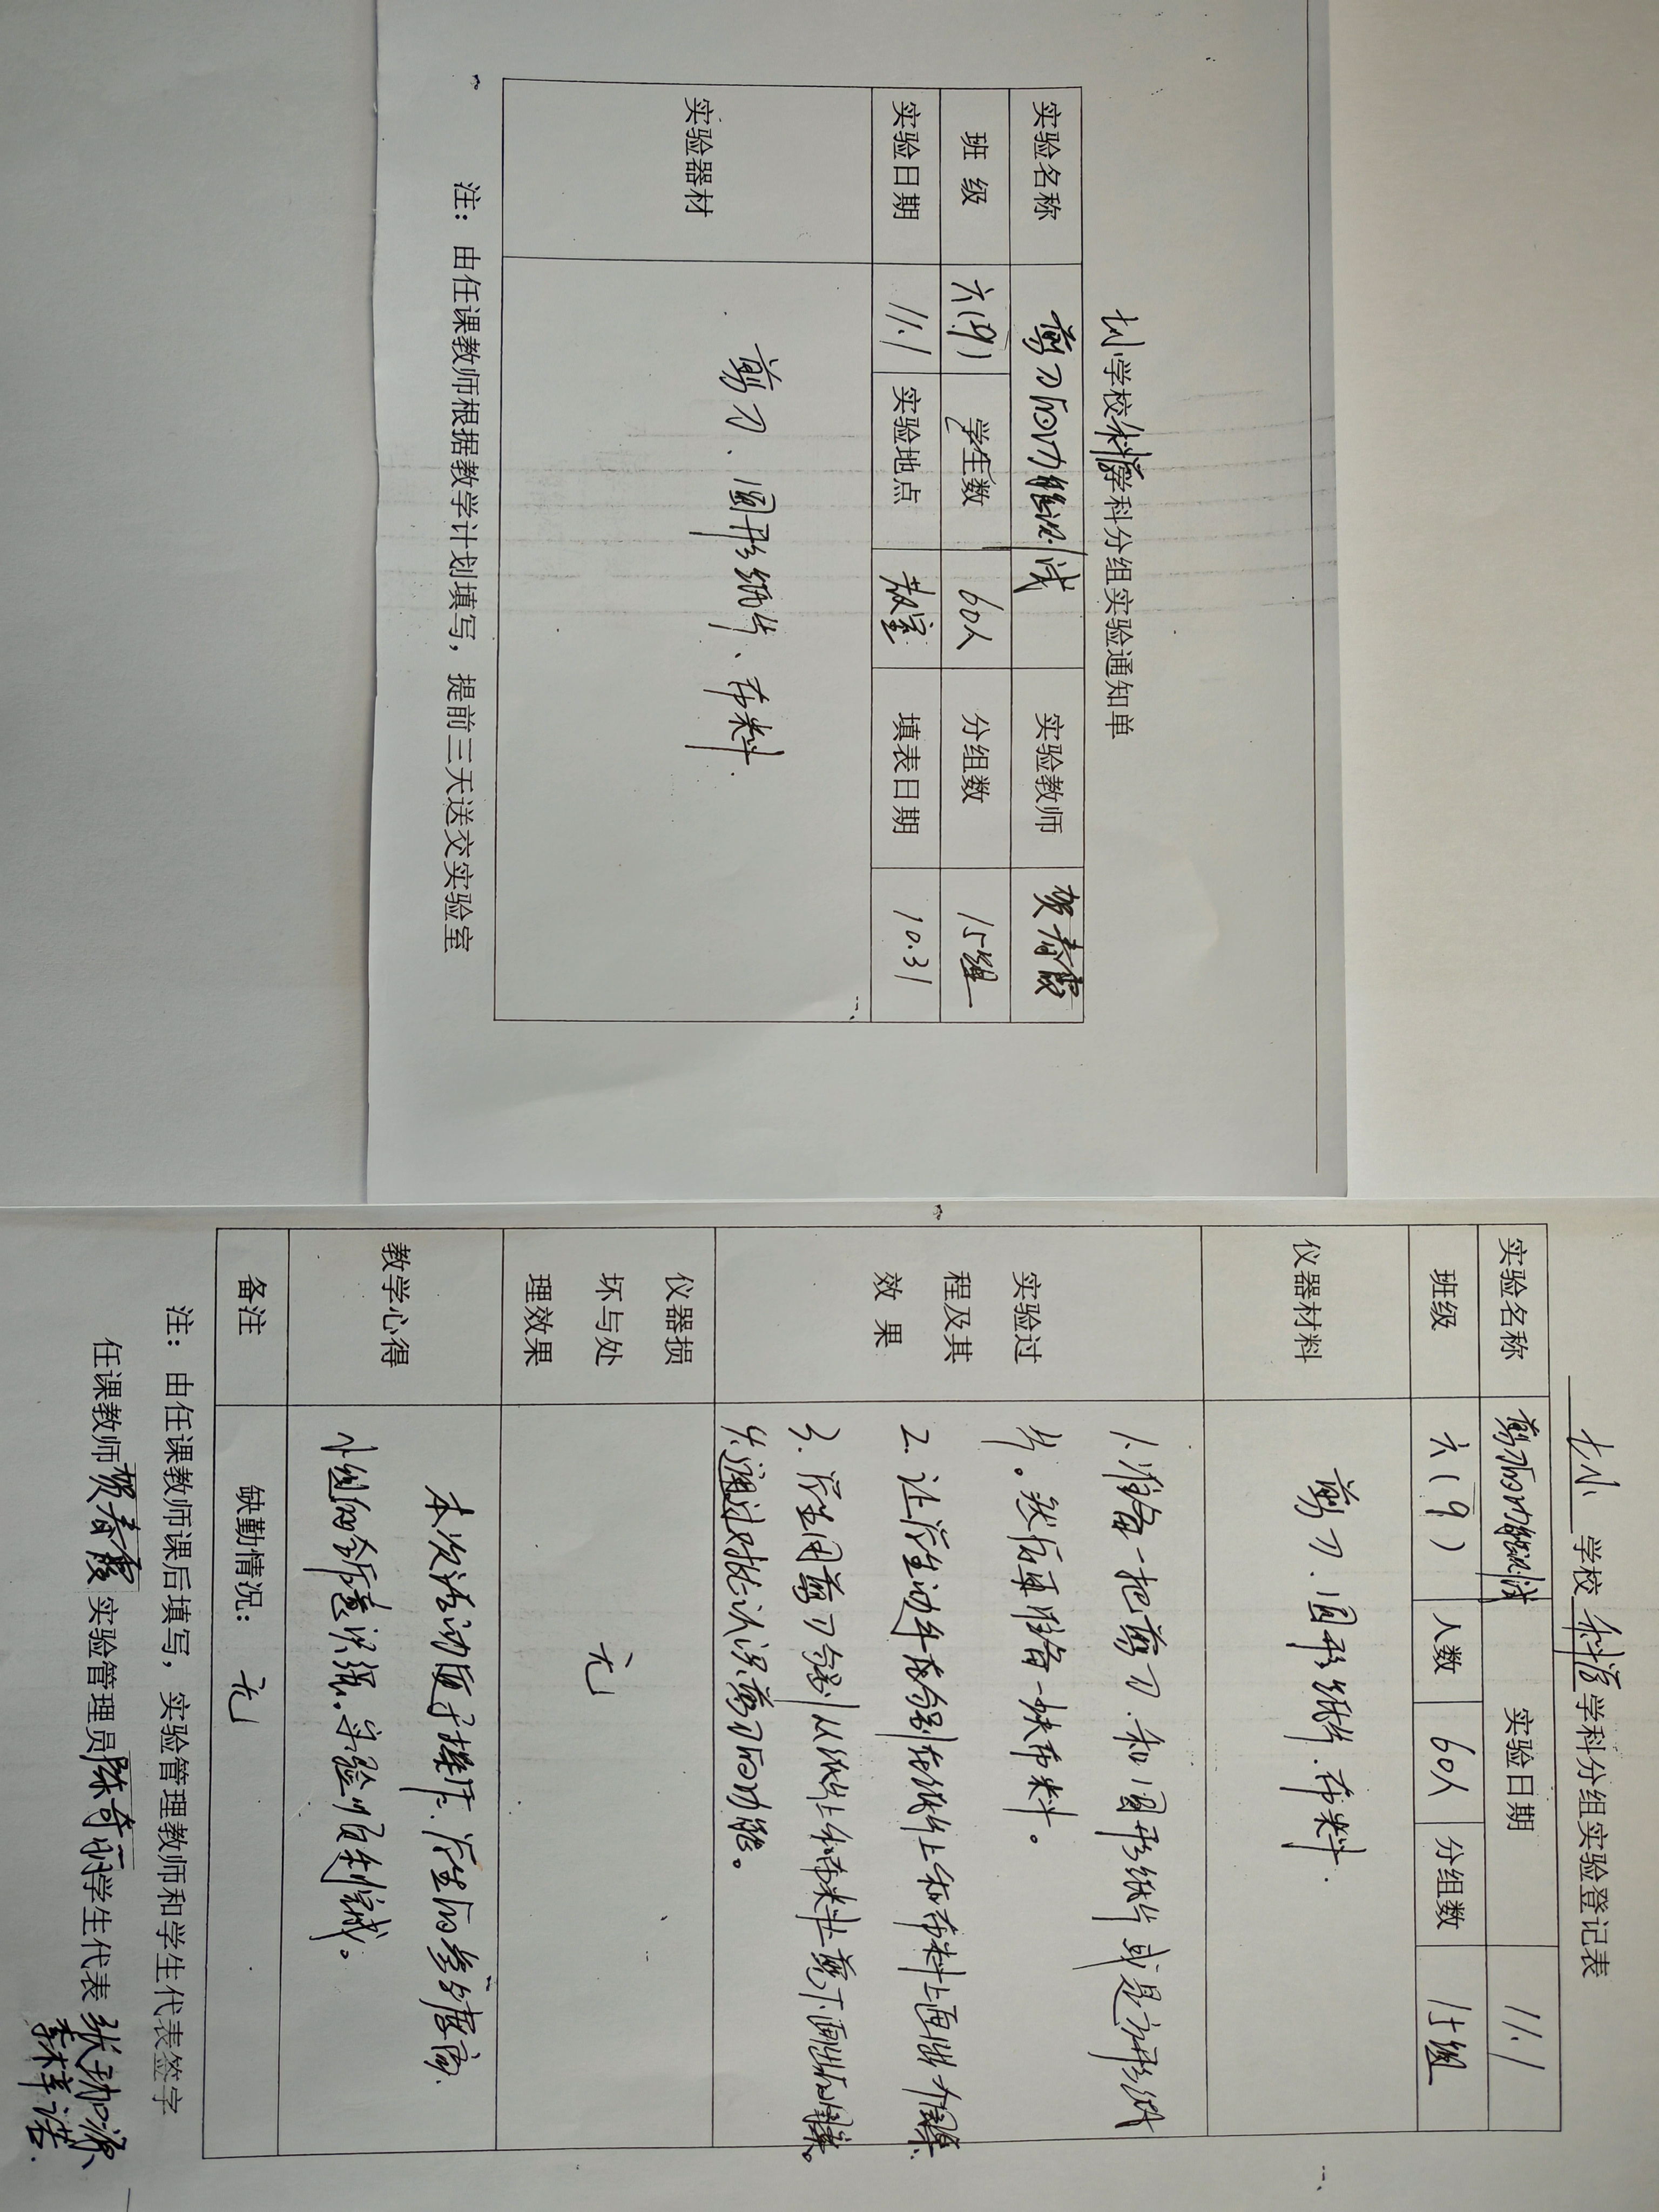 学校科学学科分组实验通知单
实验名称 剪刀的功能测试 实验教师 贺春霞
班 级 六(9) 学生数 60人 分组数 15组
实验日期 11.1 实验地点 教室 填表日期 10.31
实验器材 剪刀、圆形纸片、布料.
注： 由任课教师根据教学计划填写，提前三天送交实验室
学校 科学 学科分组实验登记表
实验名称 剪刀的功能测试 实验日期 11.1
班级 六(9) 人数 60人 分组数 15组
仪器材料 剪刀.圆形纸片.布料.
实验过
程及其
效 果
1.准备一把剪刀.和圆形纸片或是方形纸
片。然后再准备一块布料。
2.让学生动手在分别在纸片上和布料上画出
3.学生用剪刀分别从纸片上和布料上剪下画出的
4.通过对比认识剪刀的功能。
仪器损
坏与处
理效果
无
教学心得
本次活动便于操作.学生的参与度高.
小组的合作意识强.实验
备注 缺勤情况： 无
注： 由任课教师课后填写，实验管理教师和学生代表签字
任课教师贺春霞 实验管理员陈奇明学生代表 张